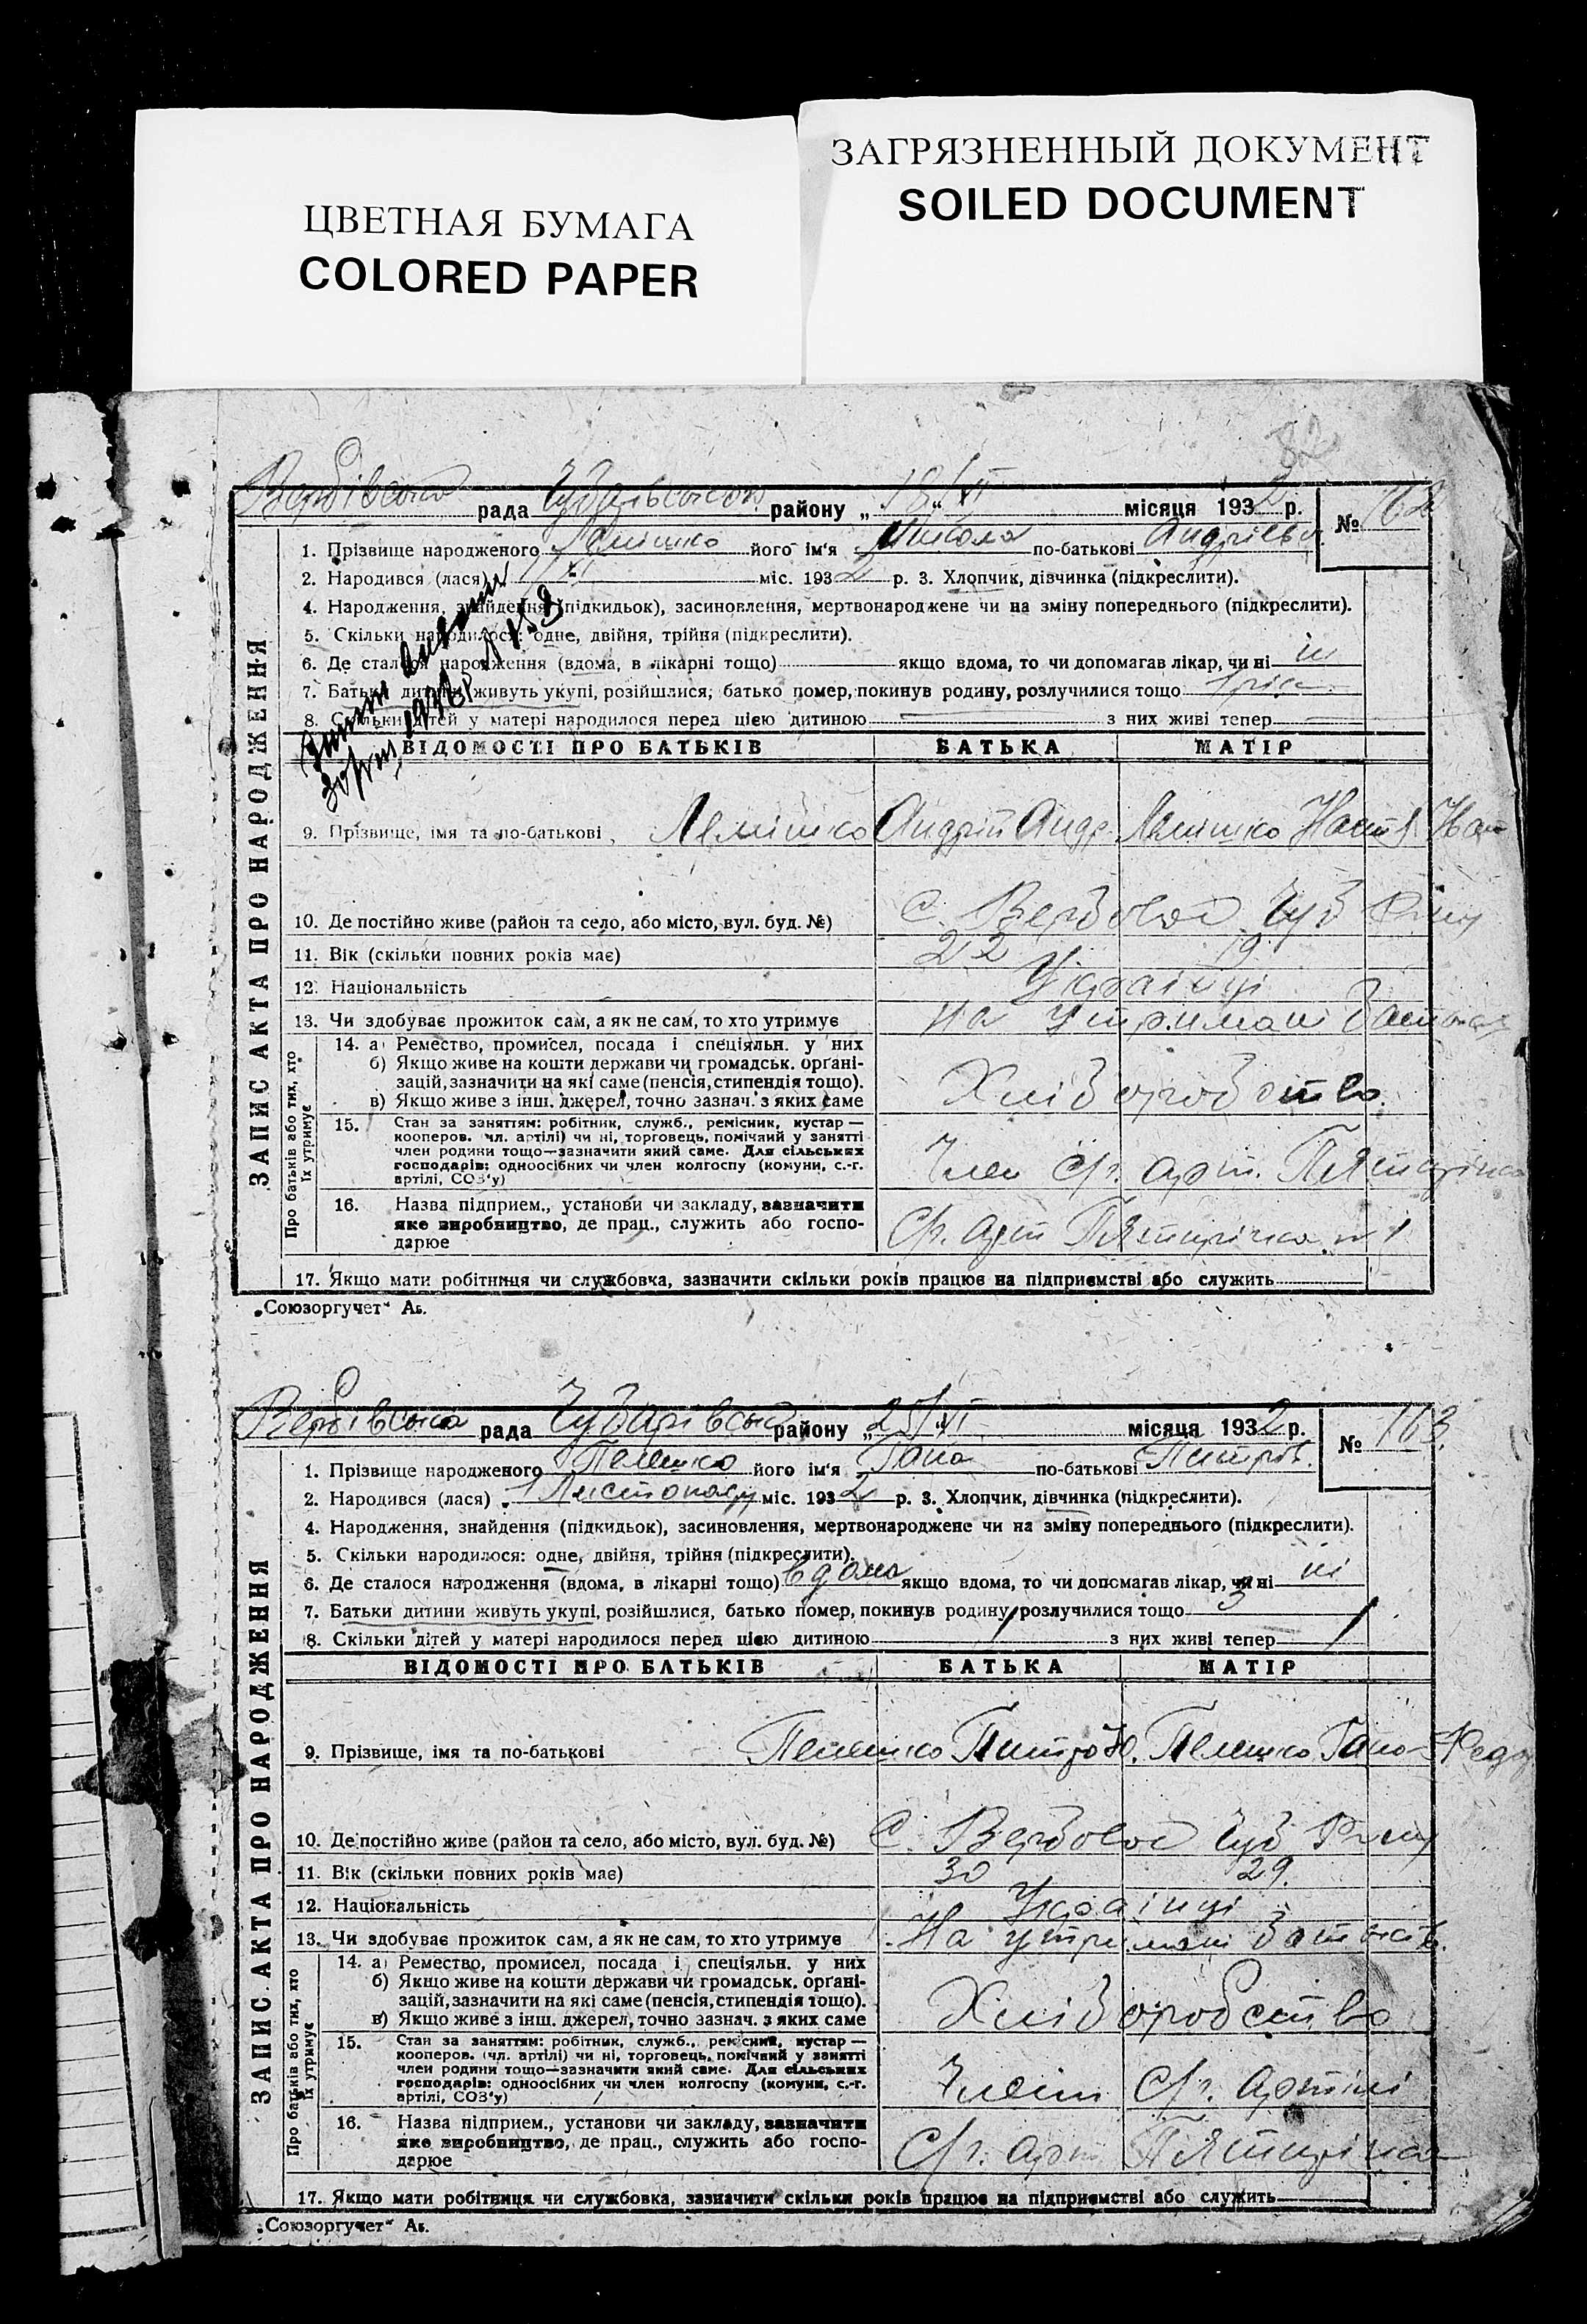 ЦВЕТНАЯ БУМАГА
COLORED PAPER
ЗАГРЯЗНЕННЫЙ ДОКУМЕНТ
SOILED DOCUMENT
82
Вербівська рада Чубарівськ району „18/XI“ місяця 1932 р. № 162
ЗАПИС АКТА ПРО НАРОДЖЕННЯ
1. Прізвище народженого Лемішко його ім'я Микола по-батькові Андрієв.
2. Народився (лася) 1/XI міс. 1932 р. 3. Хлопчик, дівчинка (підкреслити).
4. Народження, знайдення (підкидьок), засиновлення, мертвонароджене чи на зміну попереднього (підкреслити).
5. Скільки народилося: одне, двійня, трійня (підкреслити).
6. Де сталося народження (вдома, в лікарні тощо) якщо вдома, то чи допомагав лікар, чи ні ні
7. Батьки дитини живуть укупі, розійшлися, батько помер, покинув родину, розлучилися тощо 1 рік
8. Скільки дітей у матері народилося перед цією дитиною — з них живі тепер —
ВІДОМОСТІ ПРО БАТЬКІВ БАТЬКА МАТІР
9. Прізвище, імя та по-батькові Лемішко Андрій Андр. Лемішко Настя Іван
10. Де постійно живе (район та село, або місто, вул. буд. №) С. Вербовое Чуб Р-ну
11. Вік (скільки повних років має) 22 19
12. Національність Українці
13. Чи здобуває прожиток сам, а як не сам, то хто утримує На утримані
Про батьків або тих, хто їх утримує
14. а) Ремество, промисел, посада і спеціяльн. у них
б) Якщо живе на кошти держави чи громадськ. органі-
зацій, зазначити на які саме (пенсія, стипендія тощо).
в) Якщо живе з інш. джерел, точно зазнач. з яких саме
Хліборобство
15. Стан за заняттям: робітник, служб., ремісник, кустар —
кооперов. (чл. артілі) чи ні, торговець, помічний у занятті
член родини тощо—зазначити який саме. Для сільських
господарів: одноосібних чи член колгоспу (комуни, с.-г.
артілі, СОЗ'у)
Член С/г. арт. Пятирічка
16. Назва підприєм., установи чи закладу, зазначити
яке виробництво, де прац., служить або госпо-
дарює
С/г. арт Пятирічка № 1
17. Якщо мати робітниця чи службовка, зазначити скільки років працює на підприємстві або служить
„Союзоргучет“ Аб.
Вербівська рада Чубарівськ району „25/XI“ місяця 1932 р. № 163
ЗАПИС АКТА ПРО НАРОДЖЕННЯ
1. Прізвище народженого Пелешко його ім'я Гана по-батькові Питрів.
2. Народився (лася) 1 Листопаду міс. 1932 р. 3. Хлопчик, дівчинка (підкреслити).
4. Народження, знайдення (підкидьок), засиновлення, мертвонароджене чи на зміну попереднього (підкреслити).
5. Скільки народилося: одне, двійня, трійня (підкреслити).
6. Де сталося народження (вдома, в лікарні тощо) вдома якщо вдома, то чи допомагав лікар, чи ні ні
7. Батьки дитини живуть укупі, розійшлися, батько помер, покинув родину, розлучилися тощо 3
8. Скільки дітей у матері народилося перед цією дитиною 1 з них живі тепер 1
ВІДОМОСТІ ПРО БАТЬКІВ БАТЬКА МАТІР
9. Прізвище, імя та по-батькові Пелешко Питро Ю. Пелешко Гана Федор
10. Де постійно живе (район та село, або місто, вул. буд. №) С. Вербовое Чуб Р-ну
11. Вік (скільки повних років має) 30 29.
12. Національність Українці
13. Чи здобуває прожиток сам, а як не сам, то хто утримує На утримані
Про батьків або тих, хто їх утримує
14. а) Ремество, промисел, посада і спеціяльн. у них
б) Якщо живе на кошти держави чи громадськ. органі-
зацій, зазначити на які саме (пенсія, стипендія тощо).
в) Якщо живе з інш. джерел, точно зазнач. з яких саме
Хліборобство
15. Стан за заняттям: робітник, служб., ремісник, кустар —
кооперов. (чл. артілі) чи ні, торговець, помічний у занятті
член родини тощо—зазначити який саме. Для сільських
господарів: одноосібних чи член колгоспу (комуни, с.-г.
артілі, СОЗ'у)
Члени С/г. Артілі
16. Назва підприєм., установи чи закладу, зазначити
яке виробництво, де прац., служить або госпо-
дарює
С/г. арт Пятирічка
17. Якщо мати робітниця чи службовка, зазначити скільки років працює на підприємстві або служить
„Союзоргучет“ Аб.